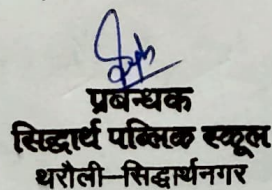 प्रबन्धक
सिद्धार्थ पब्लिक स्कूल
थरौली–सिद्धार्थनगर